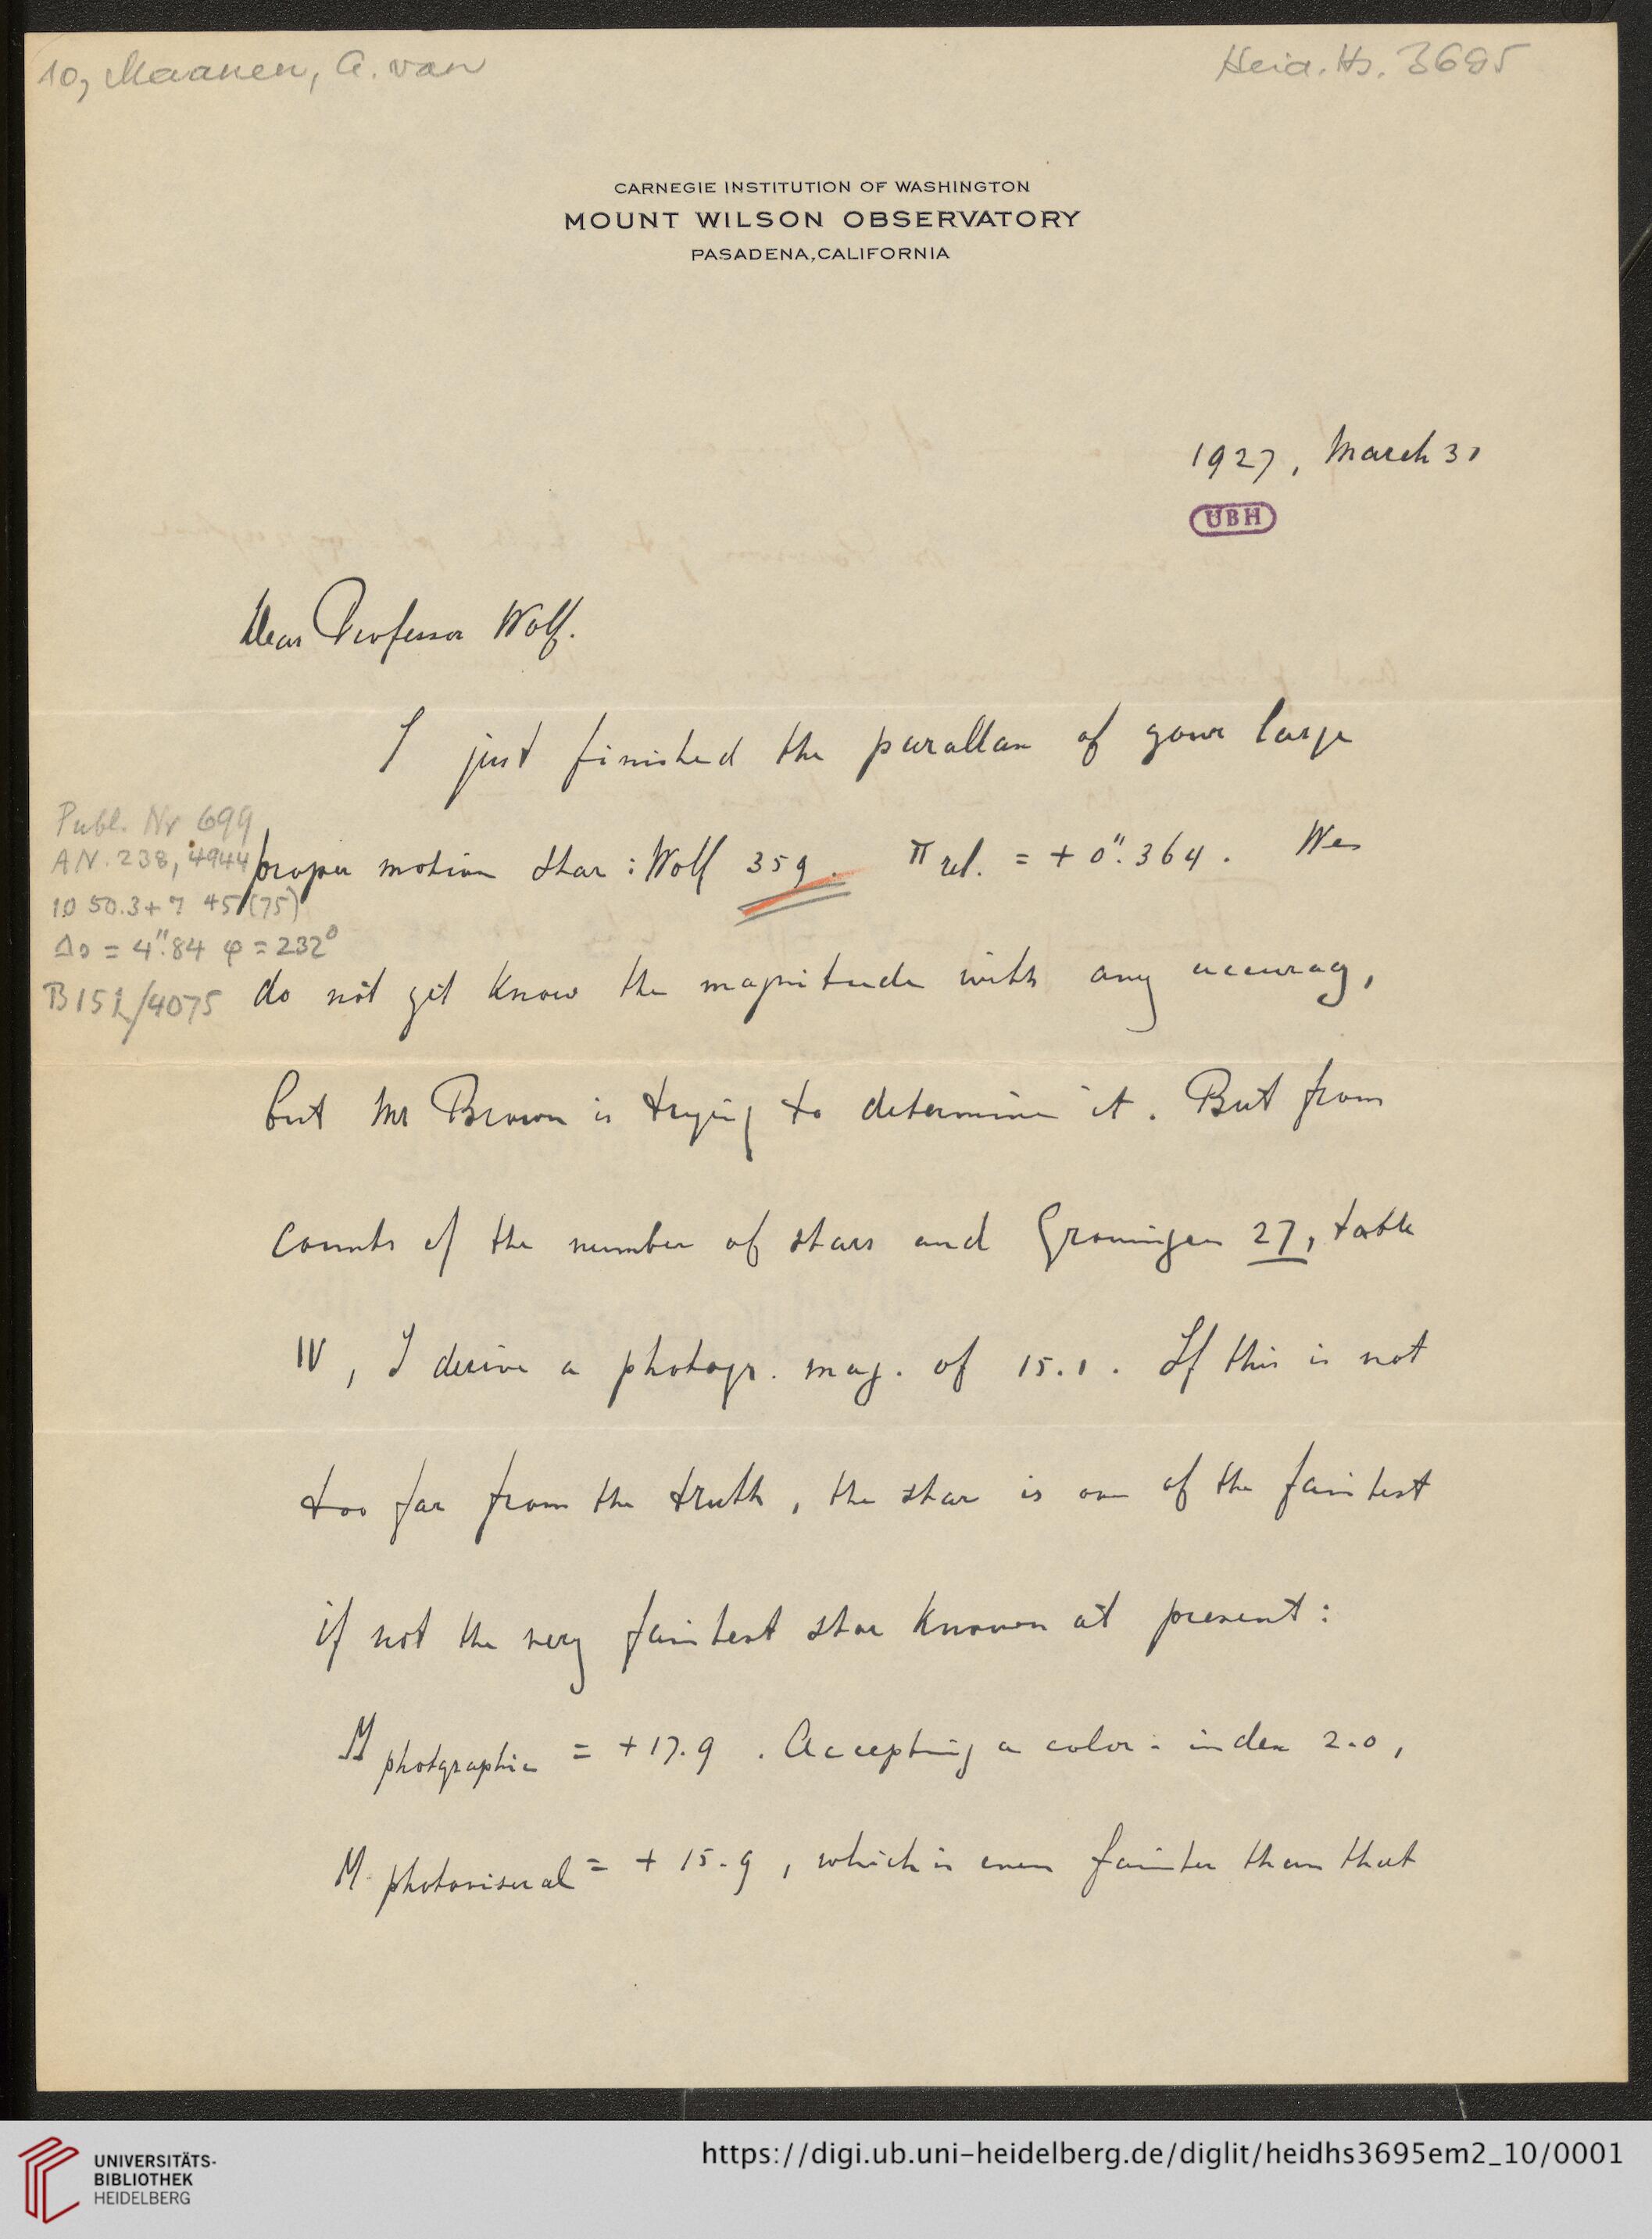 10, Maanen, A. van
Heid. Hs. 3695
CARNEGIE INSTITUTION OF WASHINGTON
MOUNT WILSON OBSERVATORY
PASADENA, CALIFORNIA
1927, March 31
UBH
Dear Professor Wolf.
I just finished the parallax of your large
Publ. Nr 699
AN. 238, 4944
proper motion star : Wolf 359. π rel. = + 0".364. We
10 50.3 + 7 45 (75)
Δs = 4".84 φ = 232°
B 152/4075
do not yet know the magnitude with any accuracy,
but Mr Brown is trying to determine it. But from
counts of the number of stars and Groningen 27, table
IV, I derive a photogr. mag. of 15.1. If this is not
too far from the truth, the star is one of the faintest
if not the very faintest star known at present:
M photgraphic = +17.9. Accepting a color-index 2.0,
M photovisual = + 15.9, which is even fainter than that
UNIVERSITÄTS-
BIBLIOTHEK
HEIDELBERG
https://digi.ub.uni-heidelberg.de/diglit/heidhs3695em2_10/0001